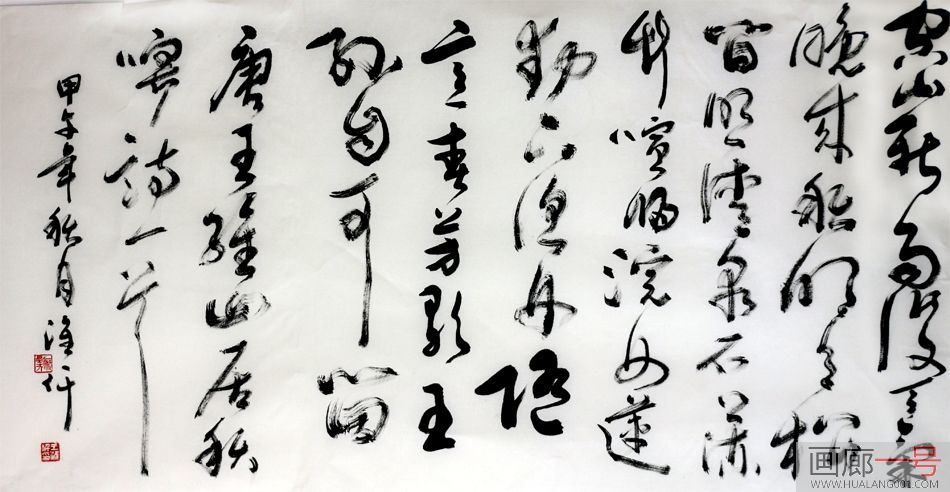 空山新雨後天氣
晚來秋明月松
間照清泉石上流
竹喧歸浣女蓮
動下漁舟隨
意春芳歇王
孫自可留
唐王維山居秋
暝詩一首
甲午年秋月
画廊一号
WWW.HUALANG001.COM